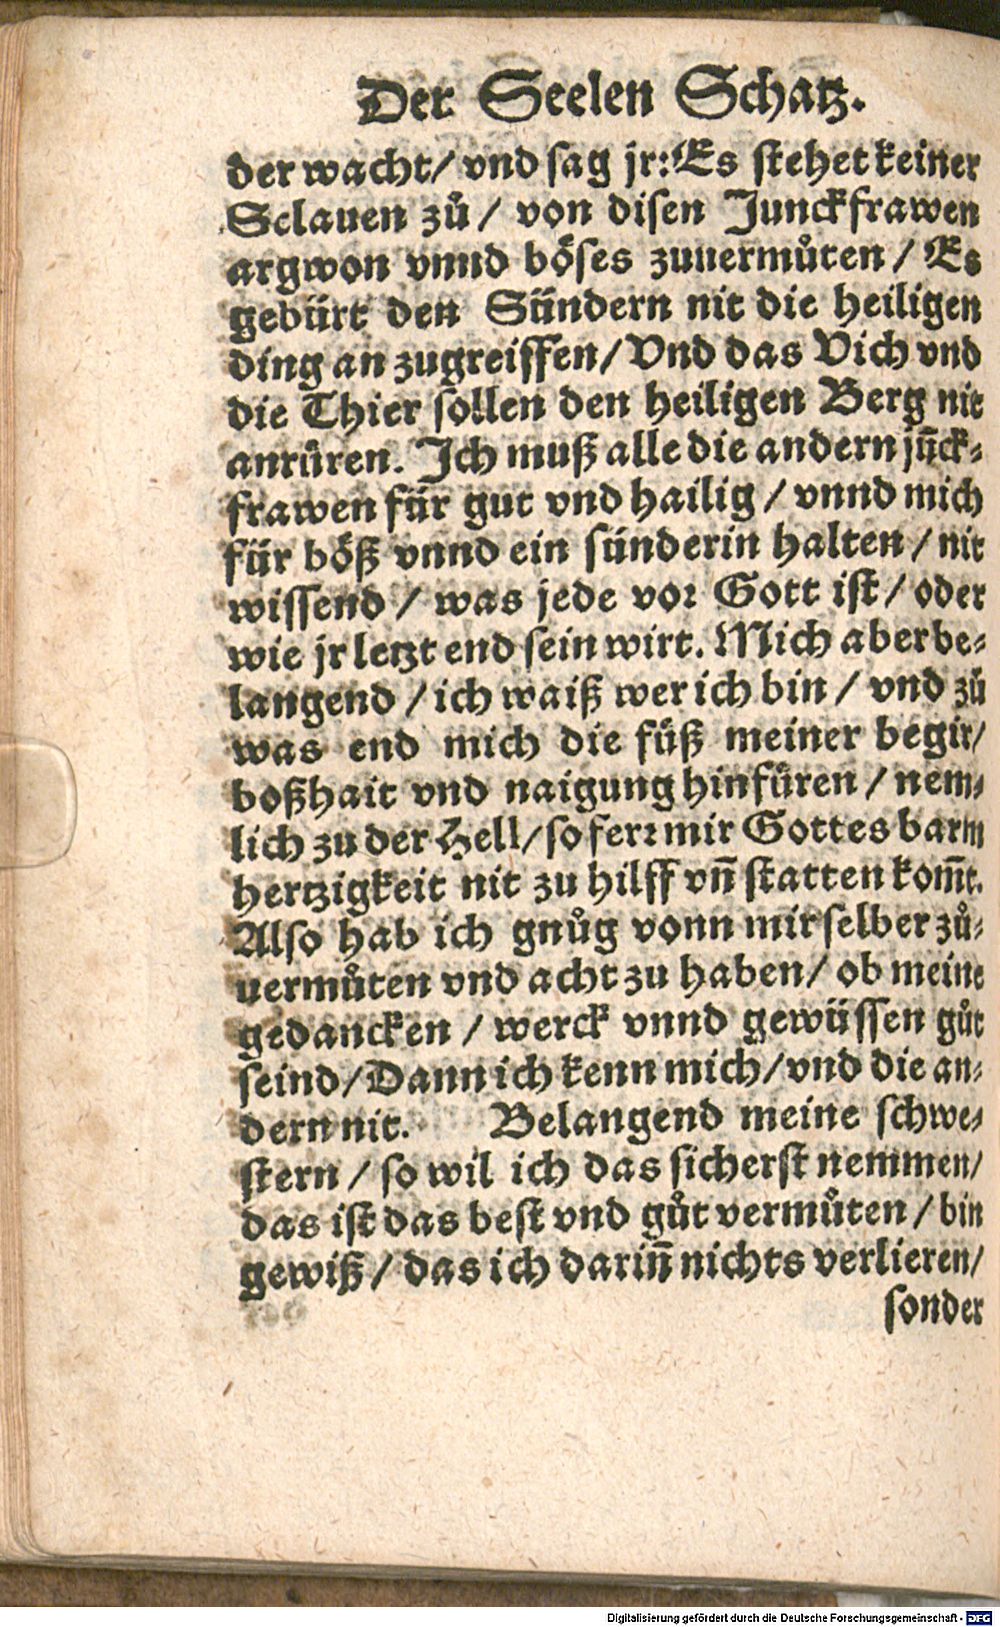 Der Seelen Schatz.
der wacht/ vnd sag jr: Es stehet keiner
Sclauen zů / von disen Junckfrawen
argwon vnnd böses zuuermůten / Es
gebürt den Sündern nit die heiligen
ding an zugreiffen/ Vnd das Vich vnd
die Thier sollen den heiligen Berg nit
anrüren. Ich muß alle die andern jūck-
frawen für gut vnd hailig / vnnd mich
für böß vnnd ein sünderin halten / nit
wissend / was jede vor Gott ist / oder
wie jr letzt end sein wirt. Mich aber be-
langend / ich waiß wer ich bin / vnd zů
was end mich die füß meiner begir/
boßhait vnd naigung hinfüren / nem-
lich zu der Hell/ so ferr mir Gottes barm
hertzigkeit nit zu hilff vn̄ statten kom̄t.
Also hab ich gnůg vonn mir selber zů-
uermůten vnd acht zu haben/ ob meine
gedancken / werck vnnd gewüssen gůt
seind/ Dann ich kenn mich/ vnd die an-
dern nit. Belangend meine schwe-
stern / so wil ich das sicherst nemmen/
das ist das best vnd gůt vermůten / bin
gewiß / das ich darin̄ nichts verlieren/
sonder
Digitalisierung gefördert durch die Deutsche Forschungsgemeinschaft - DFG